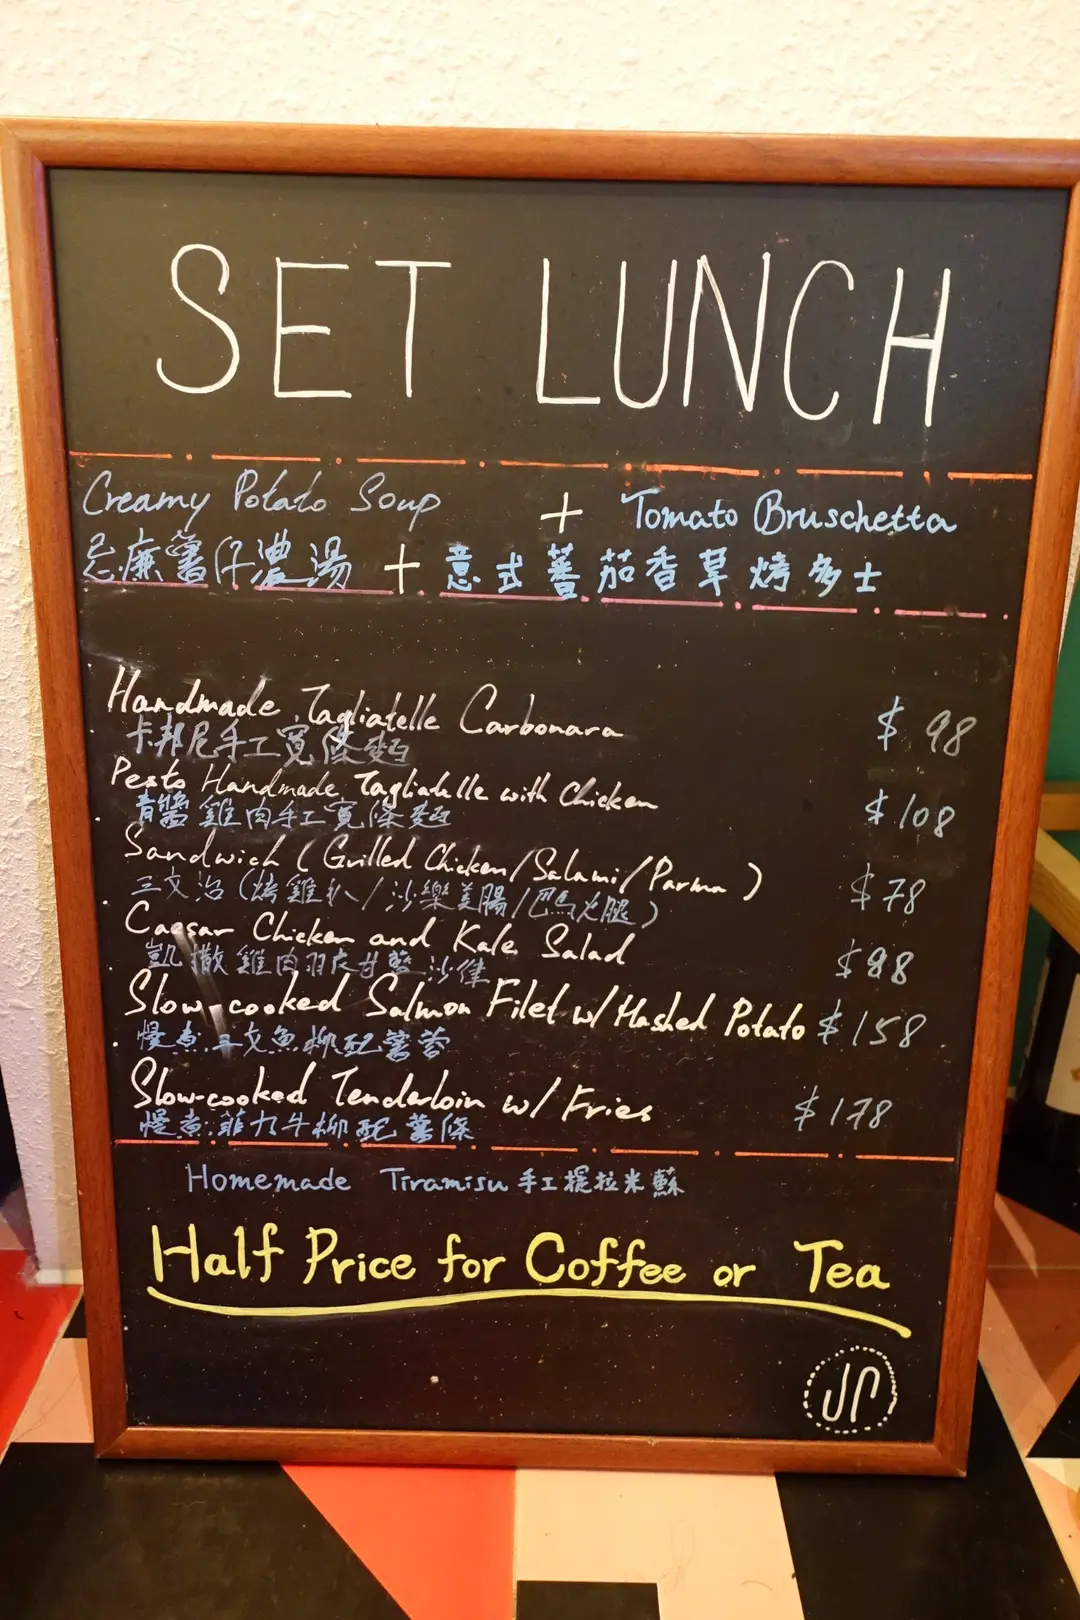 SET LUNCH
Creamy Potato Soup + Tomato Bruschetta
忌廉薯仔濃湯 + 意式蕃茄香草烤多士
Handmade Tagliatelle Carbonara $ 98
卡邦尼手工寬條麵
Pesto Handmade Tagliatelle with Chicken $ 108
青醬雞肉手工寬條麵
Sandwich (Grilled Chicken/Salami/Parma) $ 78
三文治 (烤雞扒/沙樂美腸/巴馬火腿)
Caesar Chicken and Kale Salad $ 98
凱撒雞肉羽衣甘藍沙律
Slow-cooked Salmon Filet w/ Mashed Potato $ 158
慢煮三文魚柳配薯蓉
Slow-cooked Tenderloin w/ Fries $ 178
慢煮菲力牛柳配薯條
Homemade Tiramisu 手工提拉米蘇
Half Price for Coffee or Tea